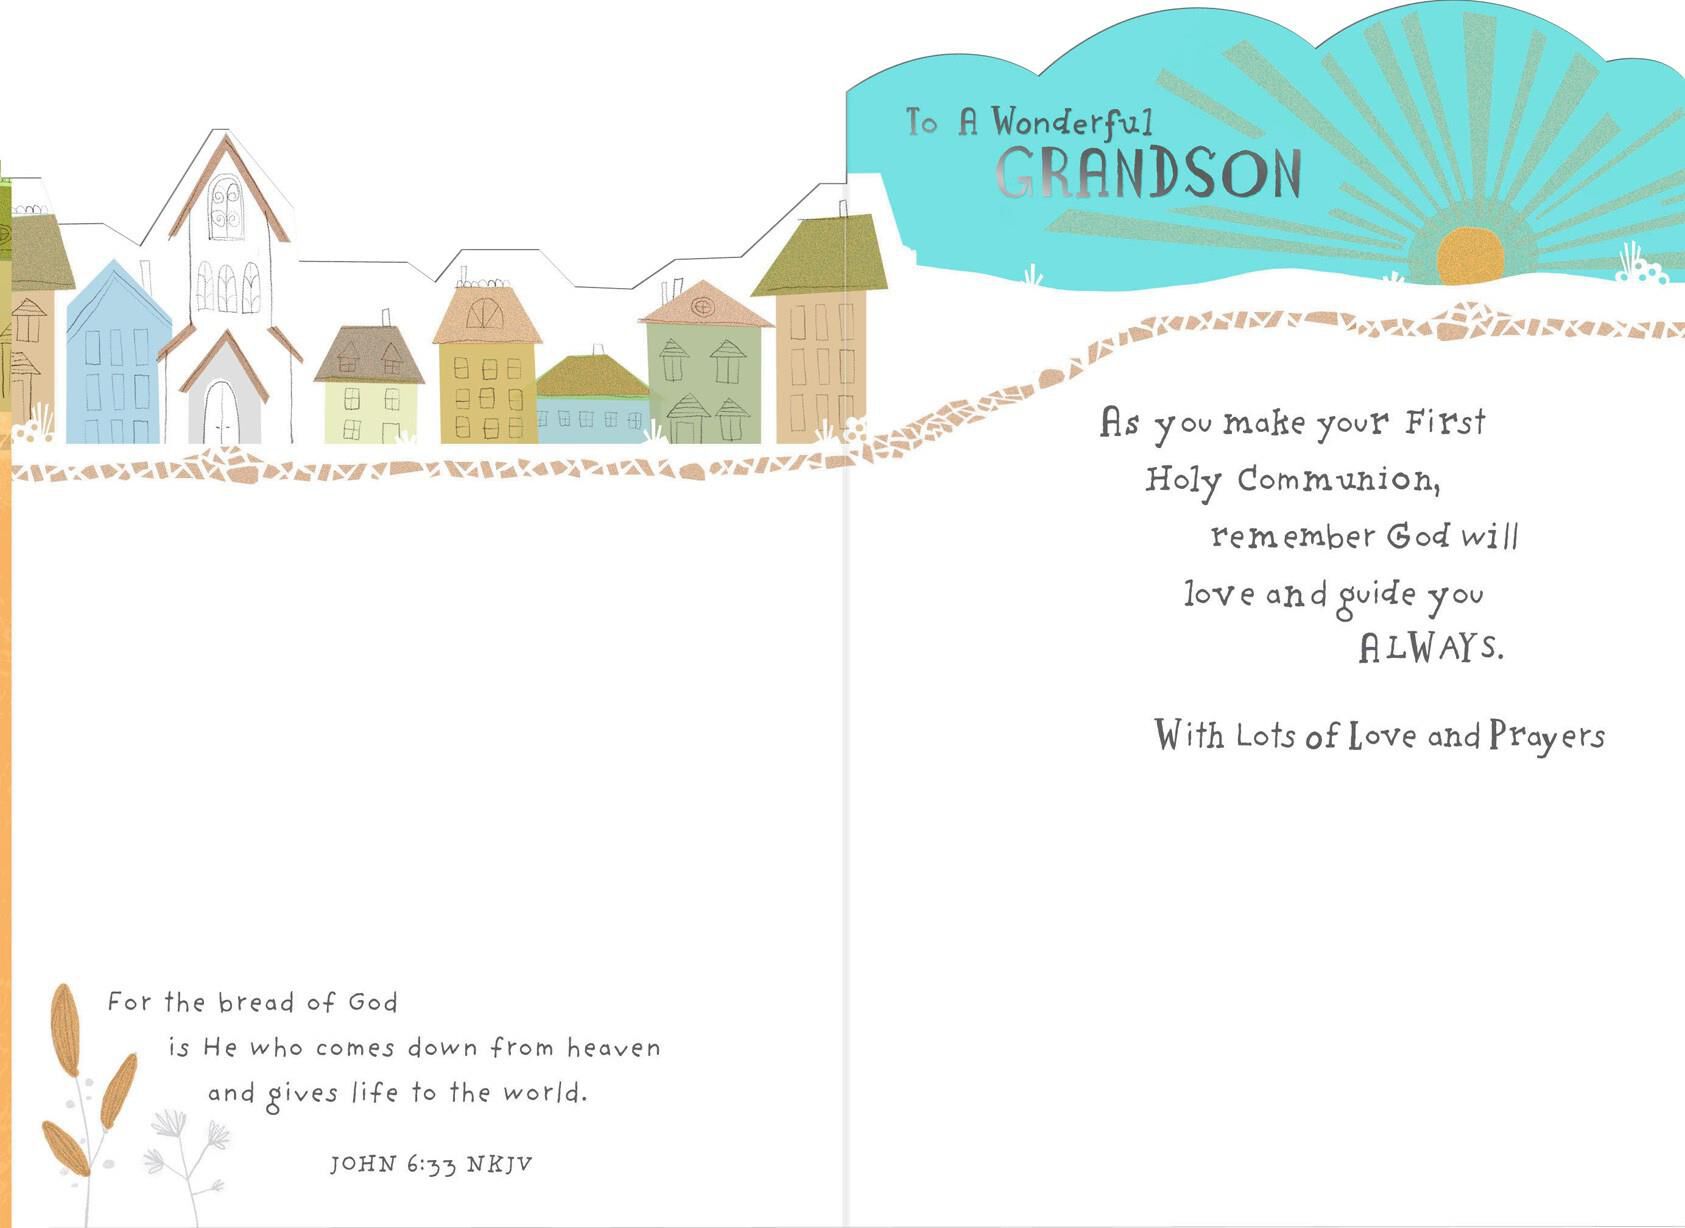 For the bread of God
is He who comes down from heaven
and gives life to the world.
JOHN 6:33 NKJV
To A Wonderful
GRANDSON
As you make your First
Holy Communion,
remember God will
love and guide you
ALWAYS.
With Lots of Love and Prayers